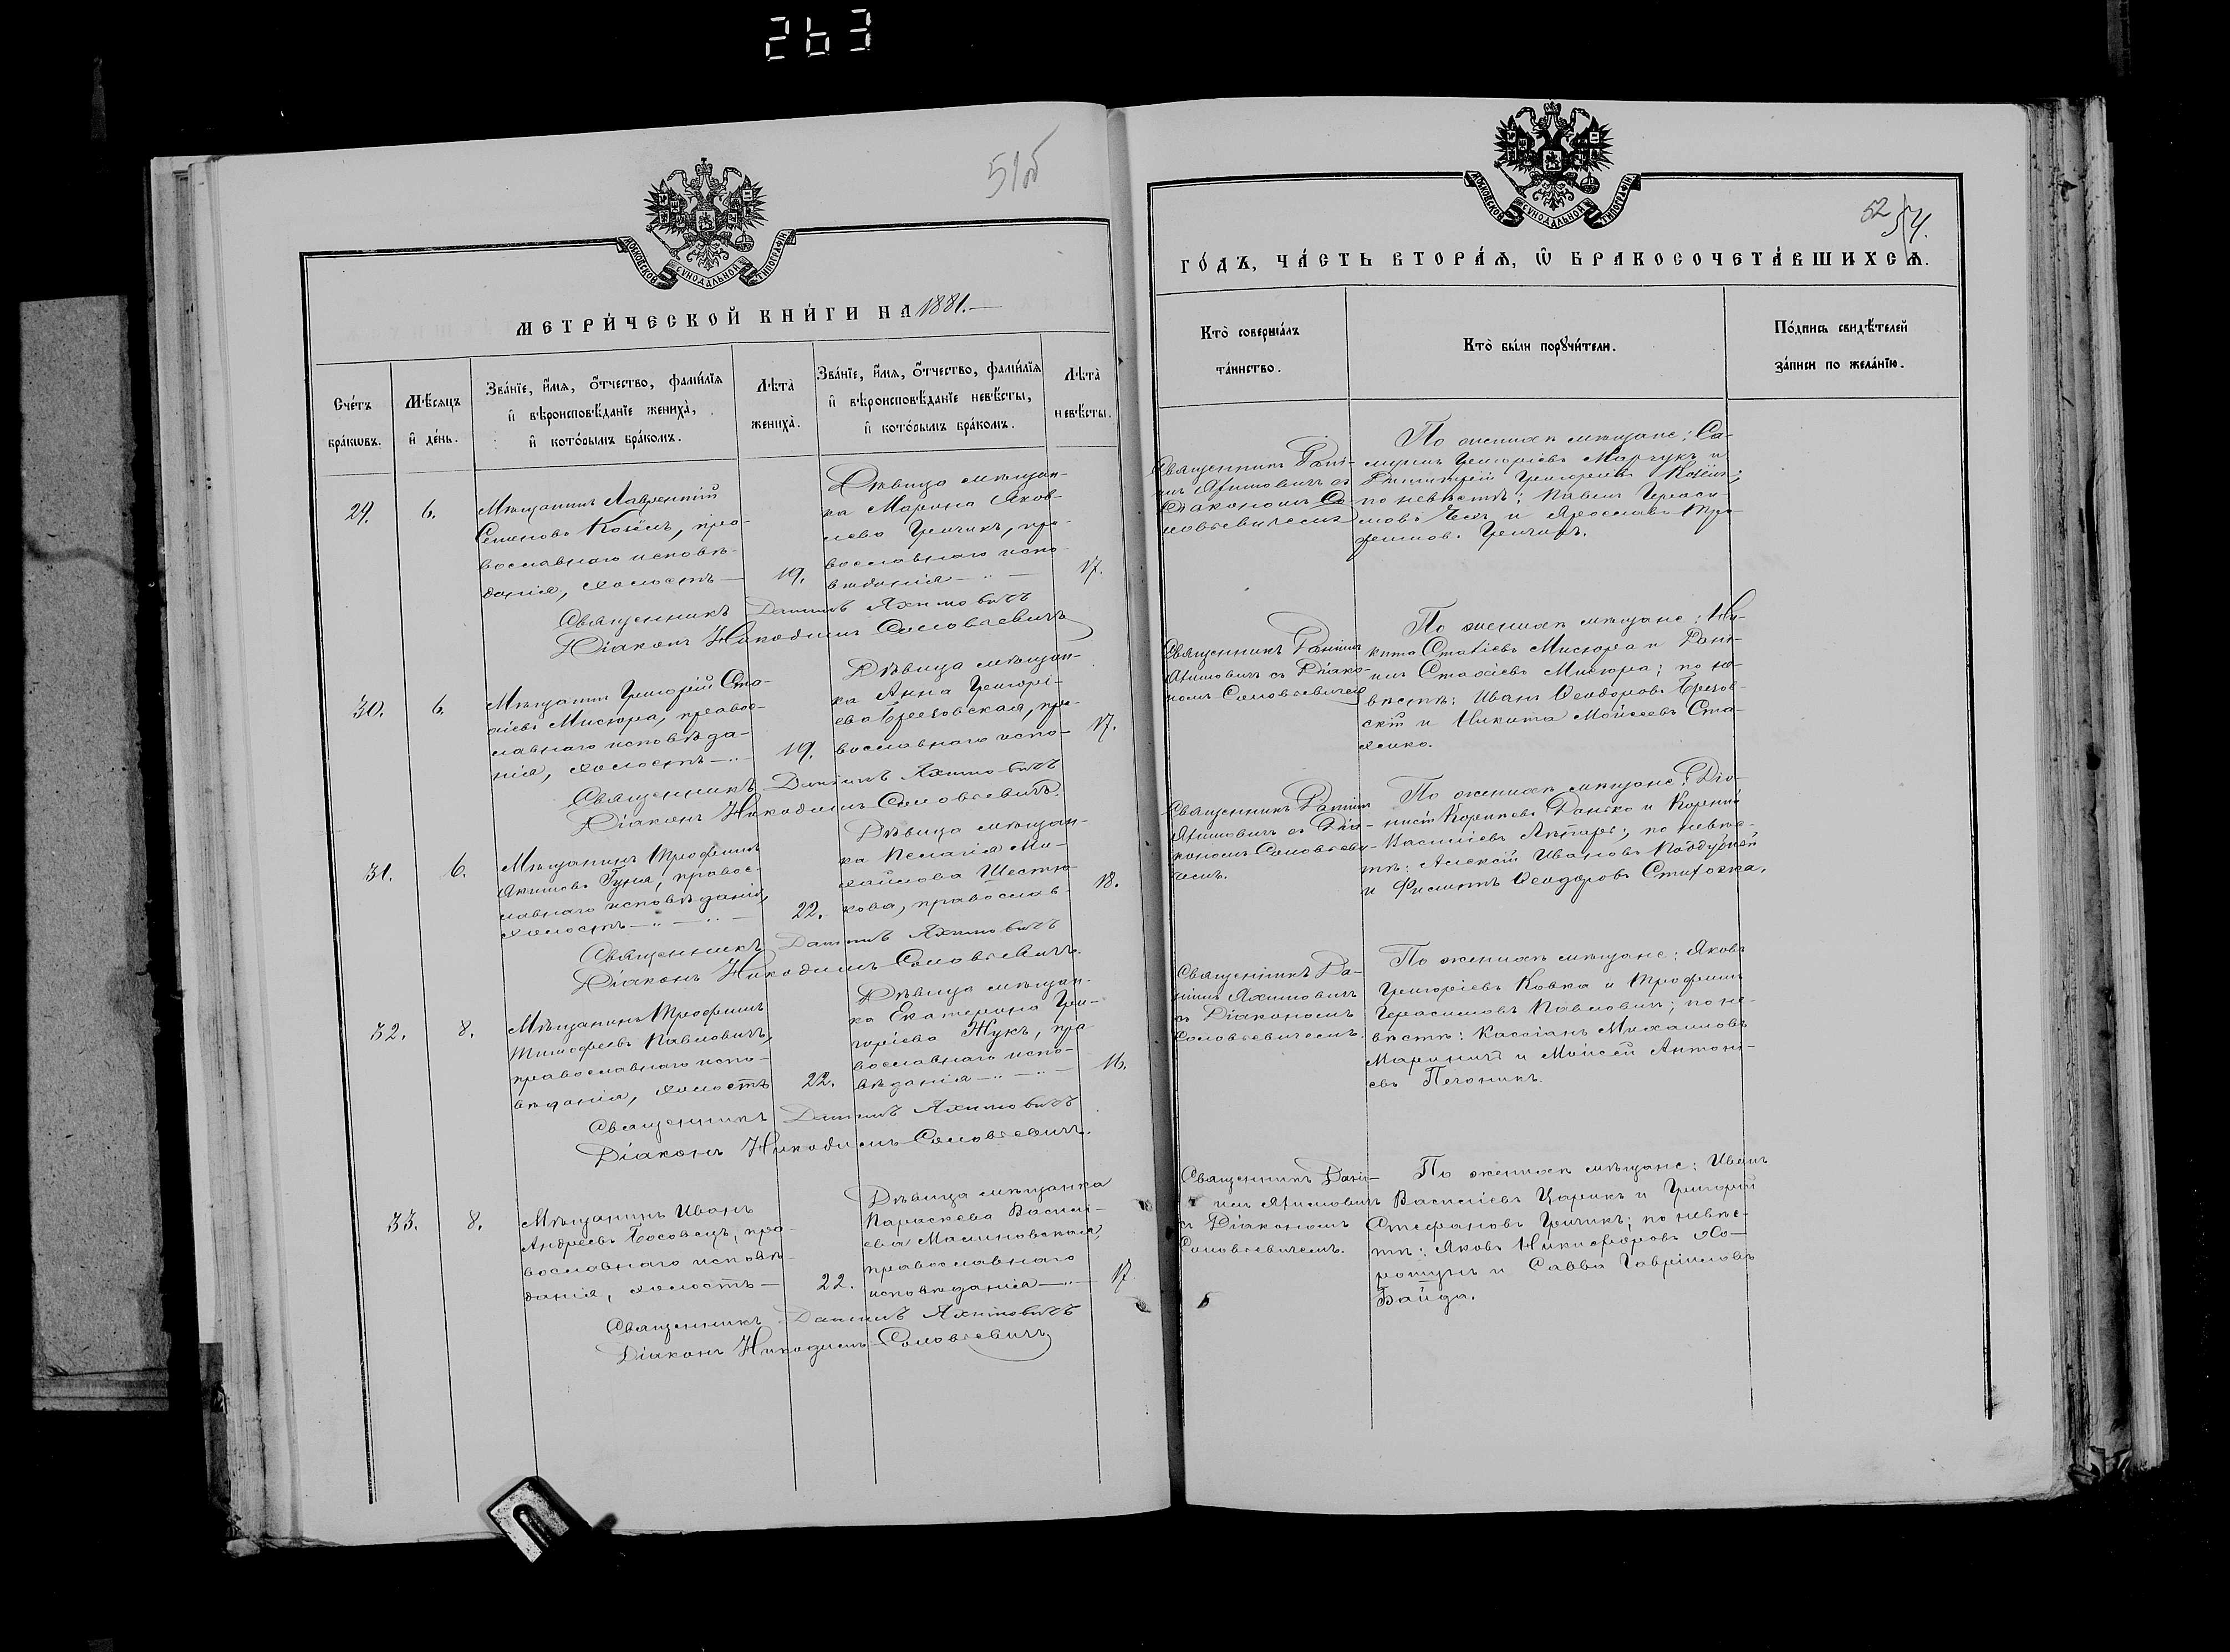 263
51об
МОСКОВСКОЙ СѴНОДАЛЬНОЙ ТИПОГРАФІИ
МЕТРИ́ЧЕСКОЙ КНИ́ГИ НА 1881.
Сче́тъ бра́кѡвъ.
Мѣ́сяцъ и҆ де́нь.
Зва́нїе, и҆́мя, ѻ҆́тчество, фами́лїя
и҆ вѣроисповѣ́данїе жениха̀,
и҆ кото́рымъ бра́комъ.
Лѣ́та жениха̀.
Зва́нїе, и҆́мя, ѻ҆́тчество, фами́лїя
и҆ вѣроисповѣ́данїе невѣ́сты,
и҆ кото́рымъ бра́комъ.
Лѣ́та невѣ́сты.
29.
6.
Мѣщанинъ Лаврентій
Семеновъ Козелъ, пра-
вославнаго исповѣ-
данія, холостъ
19.
Дѣвица мѣщан-
ка Марина Яков-
лева Гричикъ, пра-
вославнаго испо-
вѣданія
17.
Священникъ Даніилъ Яхимовичъ
Діаконъ Никодимъ Соловьевичъ
30.
6.
Мѣщанинъ Григорій Ста-
хіевъ Мисюра, правос-
лавнаго исповѣда-
нія, холостъ
19.
Дѣвица мѣщан-
ка Анна Григорі-
ева Брезовская, пра-
вославнаго испо-
17.
Священникъ Даніилъ Яхимовичъ
Діаконъ Никодимъ Соловьевичъ.
31.
6.
Мѣщанинъ Трофимъ
Якимовъ Гуня, правос-
лавнаго исповѣданія,
холостъ
22.
Дѣвица мѣщан-
ка Пелагія Ми-
хайлова Шестю-
кова, православ-
18.
Священникъ Даніилъ Яхимовичъ
Діаконъ Никодимъ Соловьевичъ.
32.
8.
Мѣщанинъ Трофимъ
Тимофеевъ Павловичъ,
православнаго испо-
вѣданія, холостъ
22.
Дѣвица мѣщан-
ка Екатерина Гри-
горіева Жукъ, пра-
вославнаго испо-
вѣданія
16.
Священникъ Даніилъ Яхимовичъ
Діаконъ Никодимъ Соловьевичъ.
33.
8.
Мѣщанинъ Иванъ
Андреевъ Босовецъ, пра-
вославнаго исповѣ-
данія, холостъ
22.
Дѣвица мѣщанка
Параскева Васили-
ева Малиновская,
православнаго
исповѣданія
17
Священникъ Даніилъ Яхимовичъ
Діаконъ Никодимъ Соловьевичъ
МОСКОВСКОЙ СѴНОДАЛЬНОЙ ТИПОГРАФІИ
52 54.
ГО́ДЪ, ЧА́СТЬ ВТОРА́Я, Ѡ҆ БРАКОСОЧЕТА́ВШИХСЯ.
Кто̀ соверша́лъ
та́инство.
Кто̀ бы́ли порꙋчи́тели.
По́дпись свидѣ́телей
за́писи по жела́нїю.
Священникъ Дані-
илъ Яхимовичъ съ
Діакономъ Со-
ловьевичемъ
По женихѣ мѣщане: Са-
муилъ Григоріевъ Марчукъ и
Димитрій Григорьевъ Козелъ;
по невѣстѣ: Павелъ Гераси-
мовъ и Ярославъ Тро-
фимовъ Гричикъ.
Священникъ Даніилъ
Яхимовичъ съ Діако-
номъ Соловьевичемъ
По женихѣ мѣщане: Ни-
кита Стахіевъ Мисюра и Дані-
илъ Стахіевъ Мисюра; по не-
вѣстѣ: Иванъ Ѳеодоровъ Брезов-
скій и Никита Моисеевъ Ста-
хейко.
Священникъ Даніилъ
Яхимовичъ съ Діа-
кономъ Соловьеви-
чемъ.
По женихѣ мѣщане: Діо-
нисій Корнеевъ Данько и Корнилій
Василіевъ; по невѣс-
тѣ: Алексѣй Ивановъ Поддубный
и Филиппъ Ѳеодоровъ.
Священникъ Да-
ніилъ Яхимовичъ
съ Діакономъ
Соловьевичемъ.
По женихѣ мѣщане: Яковъ
Григоріевъ Ковка и Трофимъ
Герасимовъ Павловичъ; по не-
вѣстѣ: Кассіанъ Михаиловъ
Мариничъ и Моисей Антоні-
евъ Печоникъ.
Священникъ Дані-
илъ Яхимовичъ
съ Діакономъ
Соловьевичемъ.
По женихѣ мѣщане: Иванъ
Василіевъ Царикъ и Григорій
Стефановъ Гричикъ; по невѣс-
тѣ: Яковъ Никифоровъ Хо-
рошунъ и Савва Гавріиловъ
Байда.